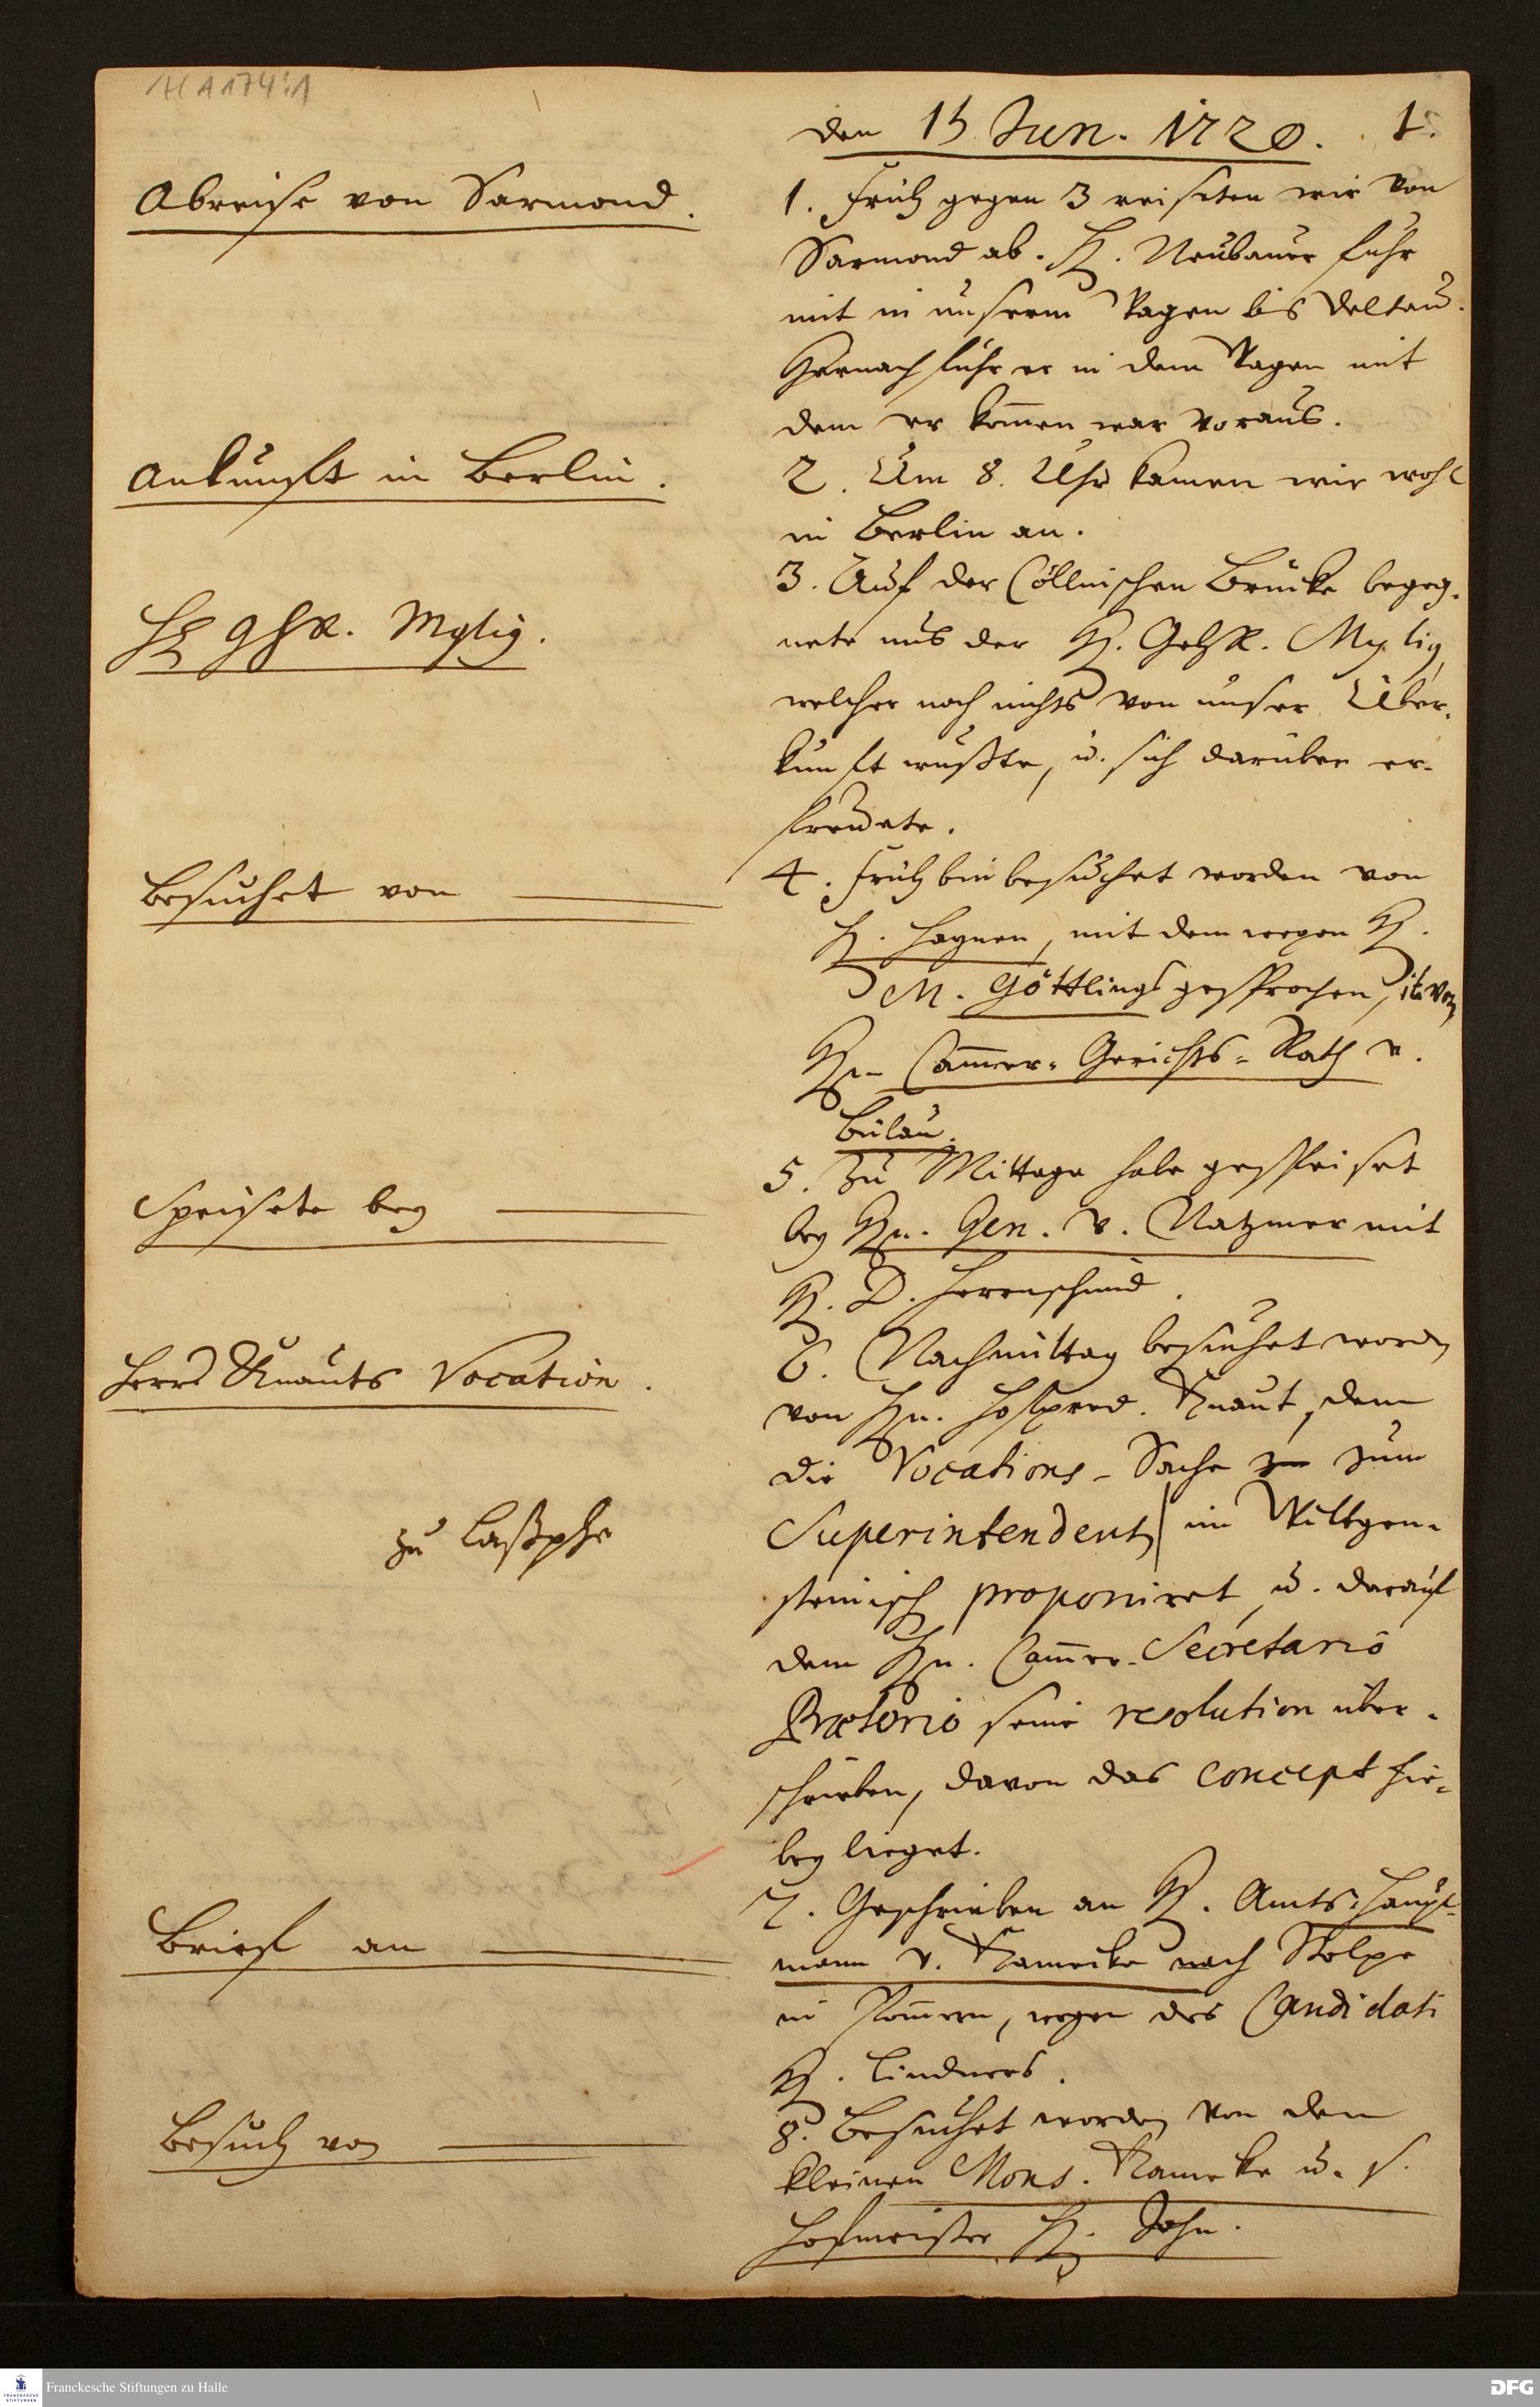 H A 174:1
den 15 Jun. 1720. 1.
Abreise von Sarmond.
1. Früh gegen 3 reiseten wir von
Sarmond ab. H. Neubauer fuhr
mit in unserm Wagen bis Deltau.
Hernach fuhr er in dem Wagen mit
dem er kom̄en war voraus.
Ankunfft in Berlin.
2. Um 8. Uhr kamen wir wohl
in Berlin an.
3. Auf der Cöllnischen Brücke begeg-
H GhR. Mylig.
nete uns der H. GehR. Mylig,
welcher noch nichts von unser Über-
kunfft wußte, u. sich darüber er-
freuete.
Besuchet von
4. Früh bin besuchet worden von
H. Hagnen, mit dem wegen H.
M. Göttlings gesprochen, it. von
Hn Cam̄er-Gerichts-Rath v.
Bülau.
Speisete bey
5. Zu Mittage habe gespeiset
bey Hn. Gen. v. Natzmer mit
H. D. Herrnschmid.
Herrn Knauts Vocation.
6. Nachmittag besuchet worden
von Hn. Hofpred. Knaut, dem
die Vocations-Sache zum
zu Laßphe
Superintendenten im Wittgen-
steinisch proponiret, u. darauf
dem Hn. Cam̄er-Secretario
Prætorio seine resolution über-
schrieben, davon das concept hie-
bey lieget.
Brief an
7. Geschrieben an H. Amts-Haupt-
mann v. Kamecke nach Stolpe
in Pom̄ern, wegen des Candidati
H. Lindners.
Besuch von
8. Besuchet worden von dem
kleinen Mons. Kameke u. s.
Hofmeister H. John.
Franckesche Stiftungen zu Halle
DFG